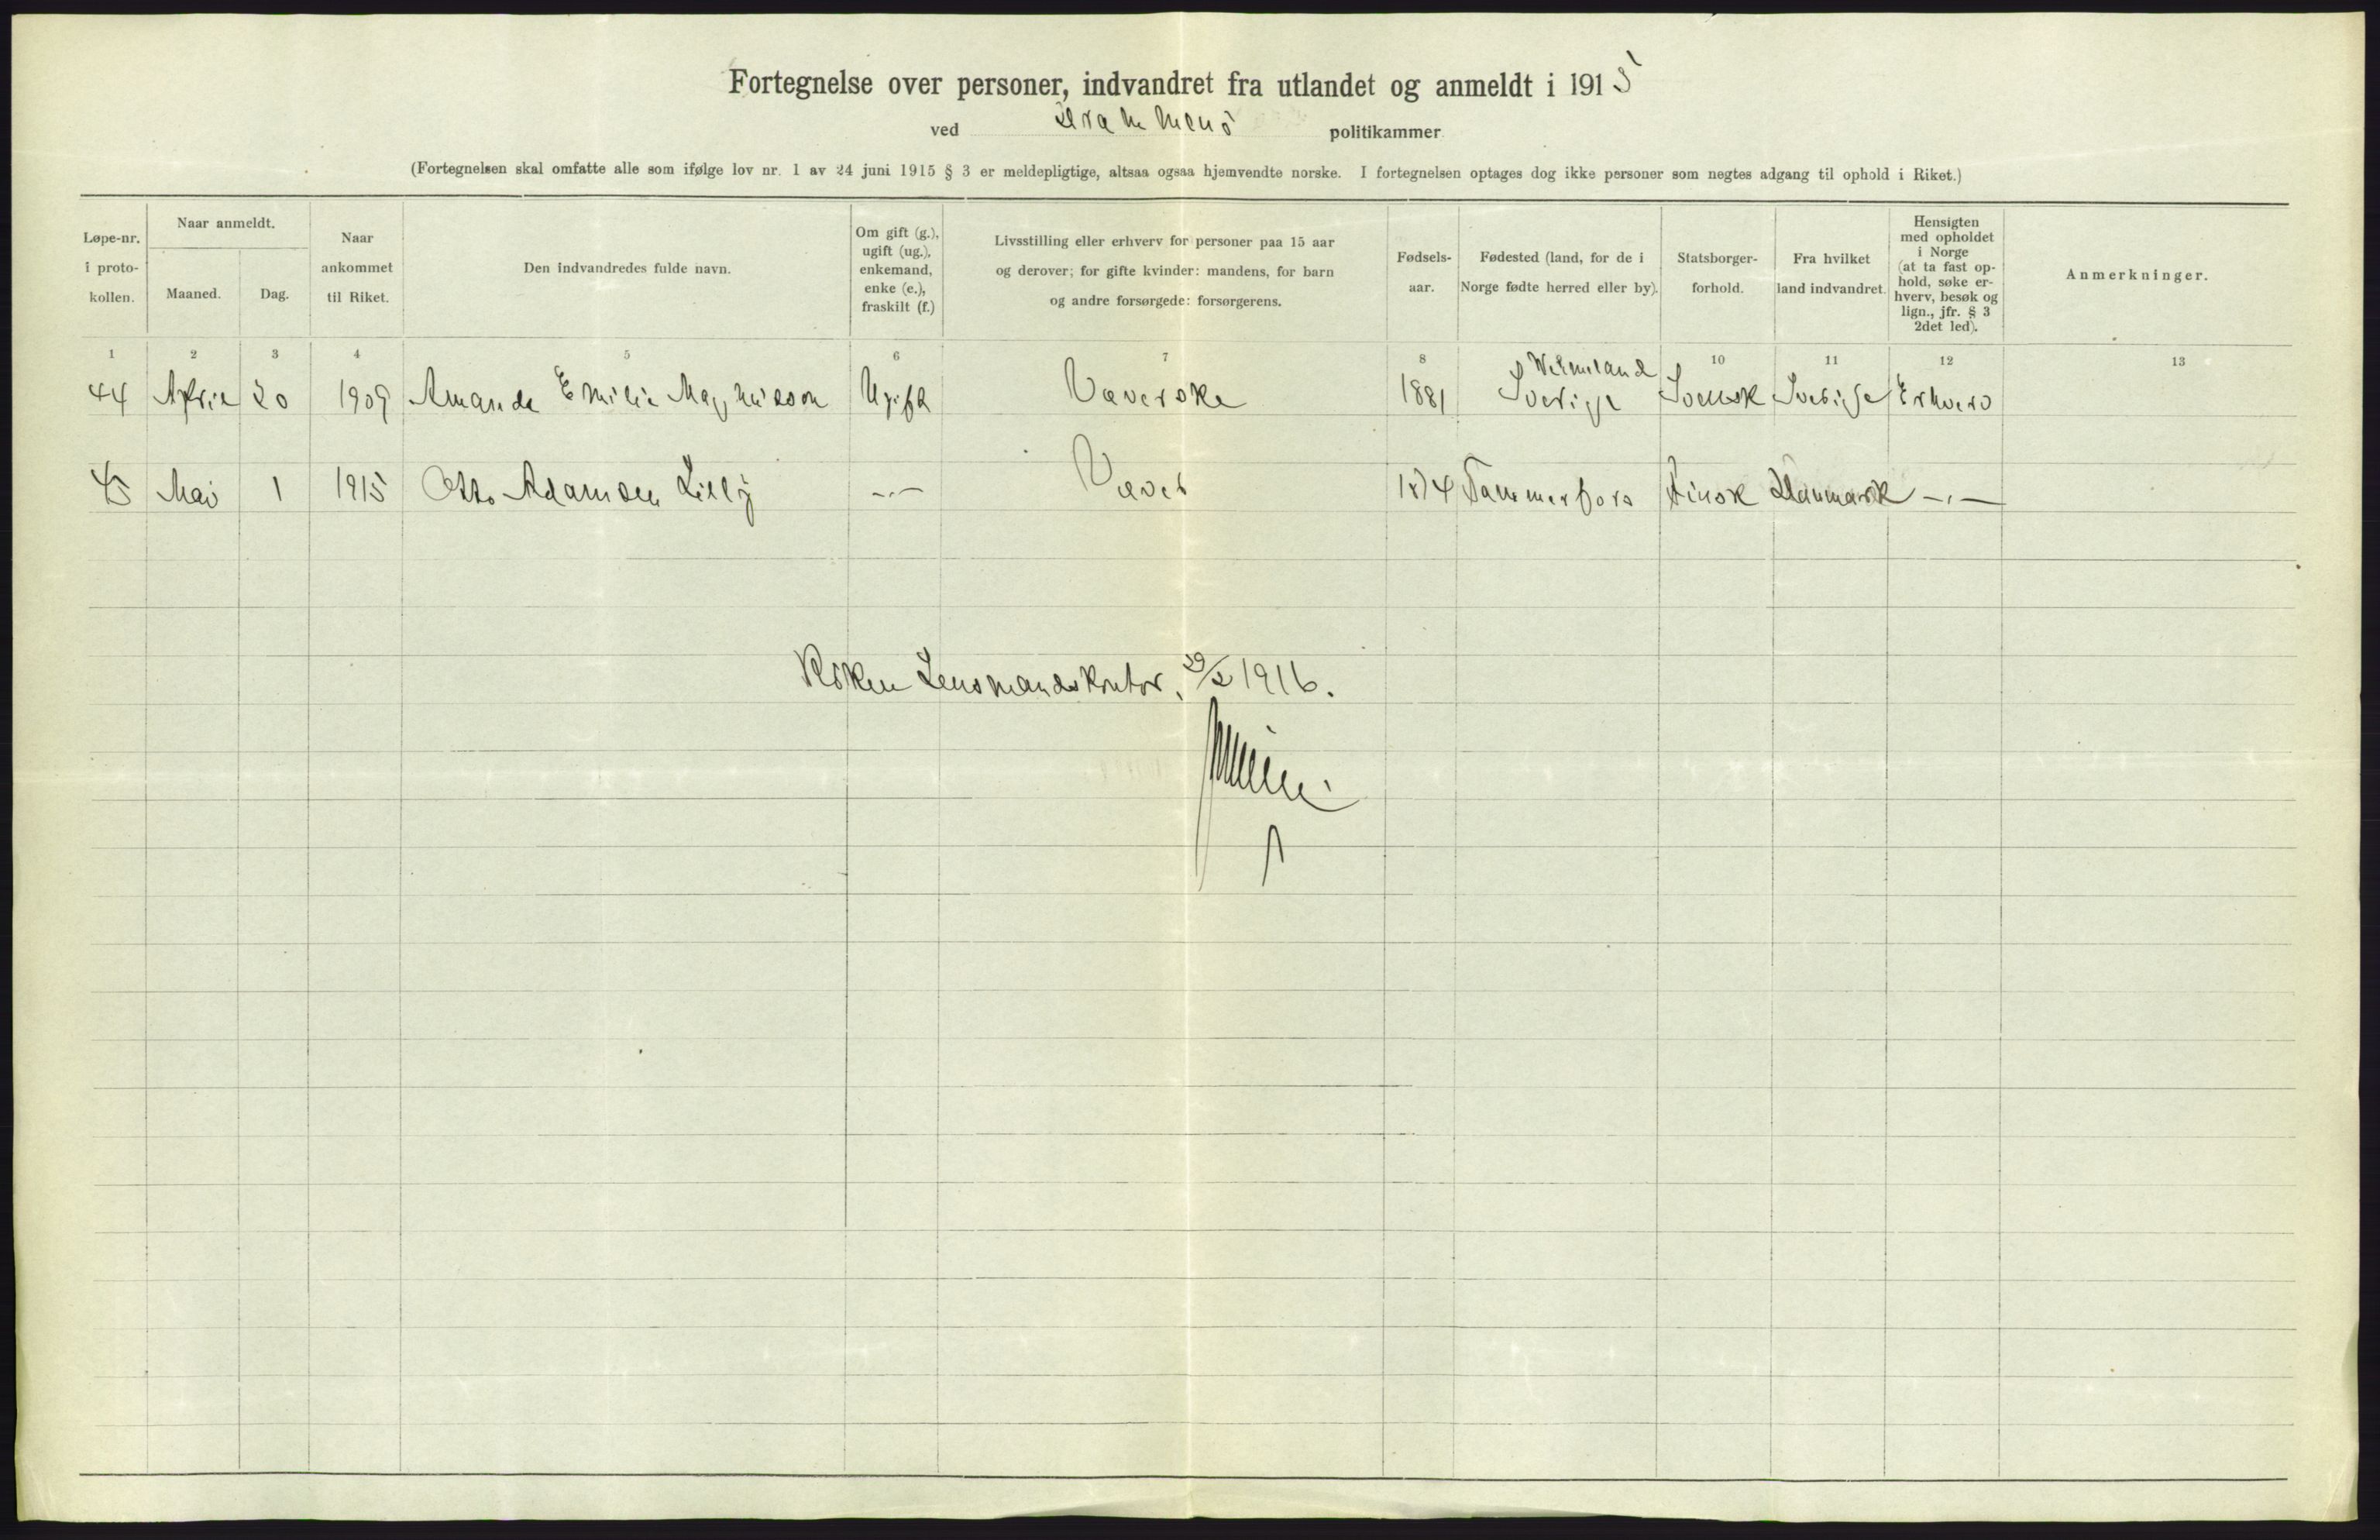 Fortegnelse over personer, indvandret fra utlandet og anmeldt i 1915
ved Drammens politikammer
(Fortegnelsen skal omfatte alle som ifølge lov nr. 1 av 24 juni 1915 § 3 er meldepligtige, altsaa ogsaa hjemvendte norske. I fortegnelsen optages dog ikke personer som negtes adgang til ophold i Riket.)
Løpe-nr.
i proto-
kollen.
Naar anmeldt.
Maaned.
Dag.
Naar
ankommet
til Riket.
Den indvandredes fulde navn.
Om gift (g.),
ugift (ug.),
enkemand,
enke (e.),
fraskilt (f.)
Livsstilling eller erhverv for personer paa 15 aar
og derover; for gifte kvinder: mandens, for barn
og andre forsørgede: forsørgerens.
Fødsels-
aar.
Fødested (land, for de i
Norge fødte herred eller by).
Statsborger-
forhold.
Fra hvilket
land indvandret.
Hensigten
med opholdet
i Norge
(at ta fast op-
hold, søke er-
hverv, besøk og
lign., jfr. § 3
2det led).
Anmerkninger.
1 2 3 4 5 6 7 8 9 10 11 12 13
44 April 20 1909 Amanda Emilie Magnusson Ugift Væverske 1881 Wermeland Sverige Svensk Sverige Erhverv
45 Mai 1 1915 Otto Adamsen Lilly -"- Væver 1874 Tammerfors Finsk Danmark -"-
Røken Lensmandskontor, 29/2 1916.